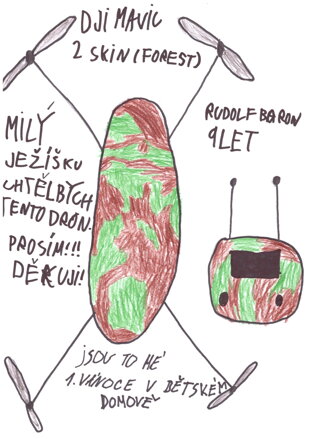 DJI MAVIC
2 SKIN (FOREST)
RUDOLF BARON
9 LET
MILÝ
JEŽÍŠKU
CHTĚL BYCH
TENTO DRON.
PROSÍM!!!
DĚKUJI!
JSOU TO MÉ
1. VÁNOCE V DĚTSKÉM
DOMOVĚ